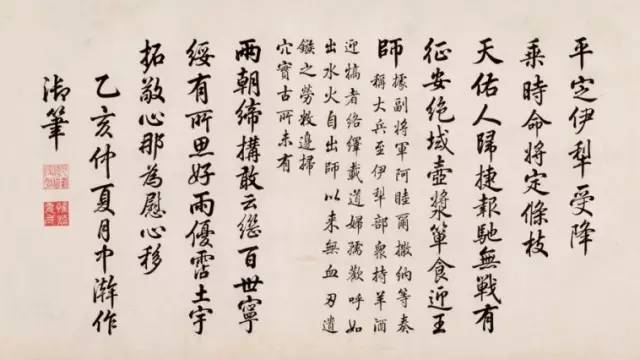 平定伊犁受降
乘時命將定條枝
天佑人歸捷報馳無戰有
征安絶域壺漿簞食迎王
師
據副將軍阿睦爾撒納等奏
稱大兵至伊犁部衆持羊酒
迎犒者絡繹載道婦孺歡呼如
出水火自出師以來無血刃遺
鏃之勞敉邊掃
穴實古所未有
兩朝締構敢云繼百世寧
綏有所思好雨優霑土宇
拓敬心那為慰心移
乙亥仲夏月中澣作
御筆